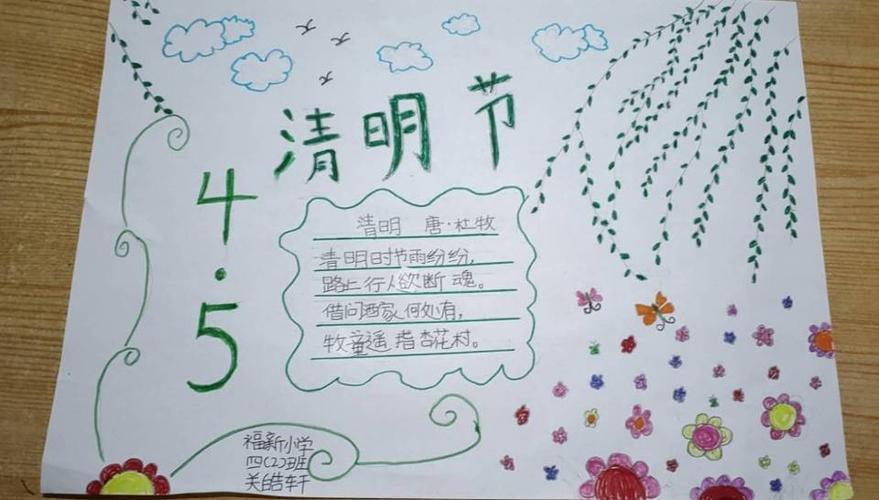 清明节
4·5
清明 唐·杜牧
清明时节雨纷纷,
路上行人欲断魂。
借问酒家何处有,
牧童遥指杏花村。
福新小学
四(2)班
关皓轩